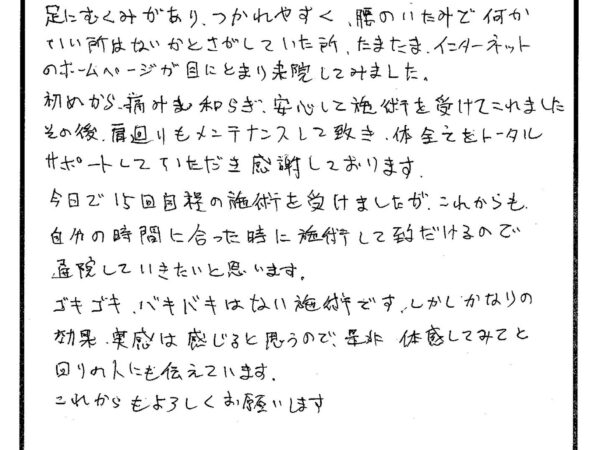 足にむくみがあり、つかれやすく、腰のいたみで何か
いい所はないかとさがしていた所、たまたま、インターネット
のホームページが目にとまり来院してみました。
初めから、痛みも和らぎ、安心して施術を受けてこれました
その後、肩回りもメンテナンスして致き、体全てをトータル
サポートしていただき感謝しております。
今日で15回目程の施術を受けましたが、これからも
自分の時間に合った時に施術して致だけるので
通院していきたいと思います。
ゴキゴキ、バキバキはない施術です。しかしかなりの
効果、実感は感じると思うので、是非 体感してみてと
回りの人にも伝えています。
これからもよろしくお願いします